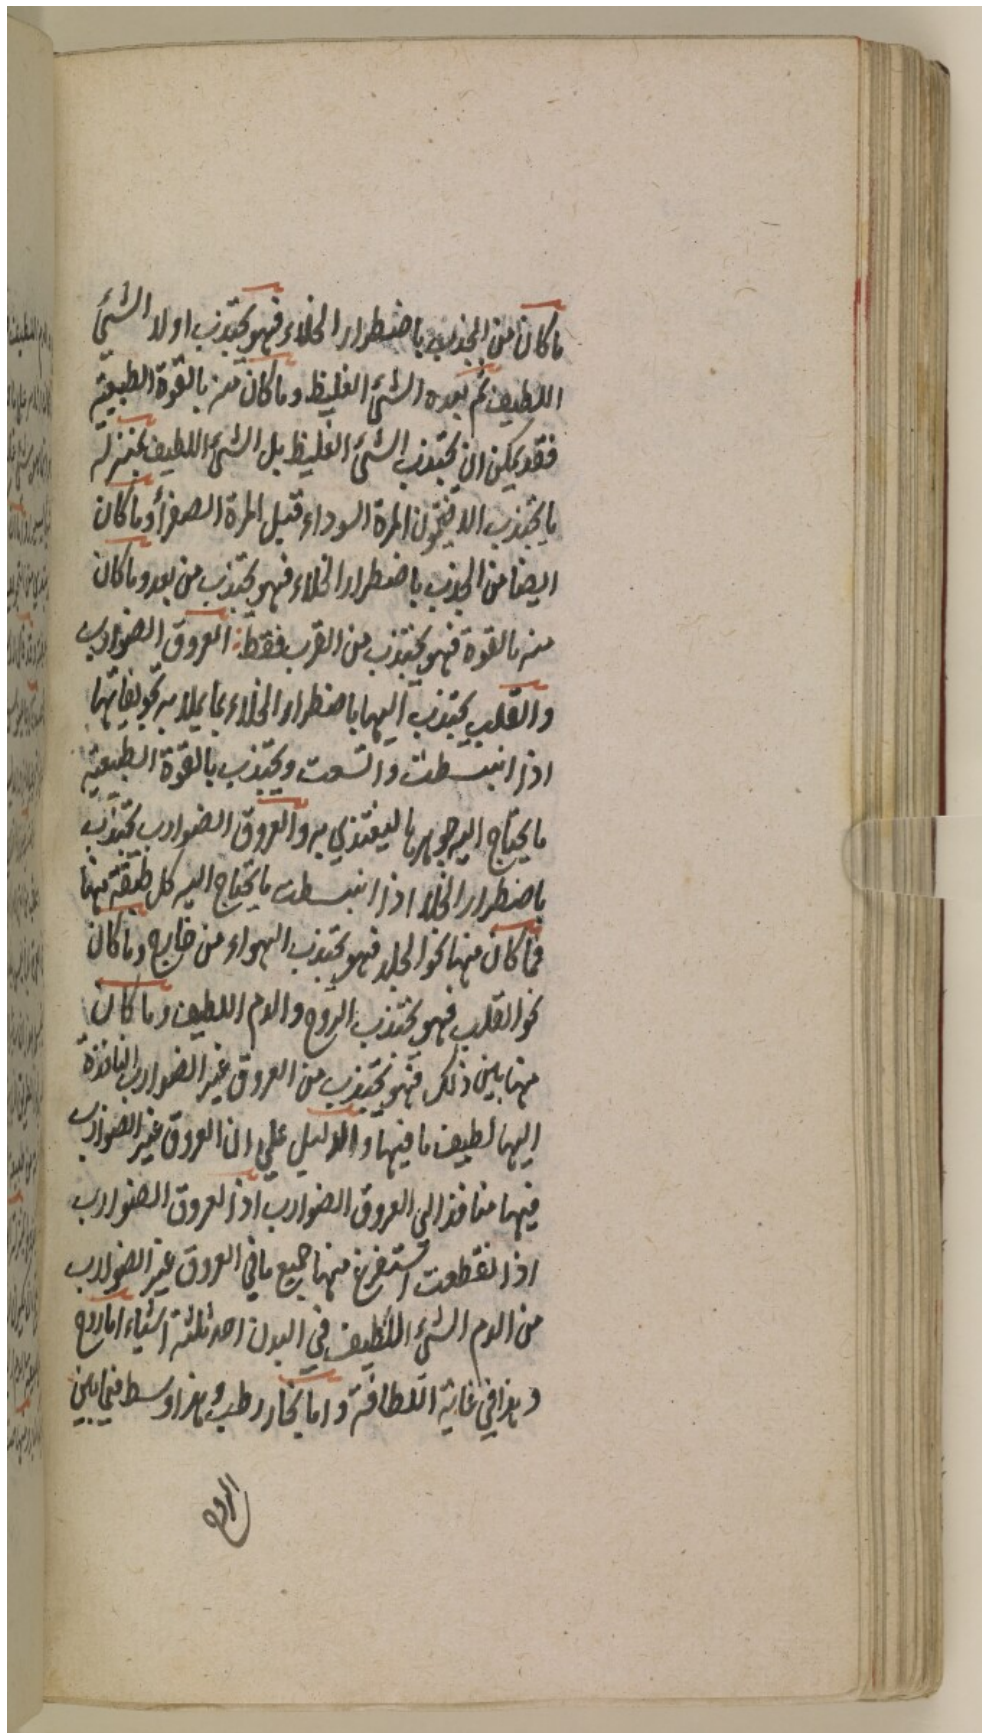 ما كان من الجذب باضطرار الخلاء فهو يجتذب اولا الشئ
اللطيف ثم بعده الشئ الغليظ وما كان منه بالقوة الطبيعية
فقد يمكن ان يجتذب الشئ الغليظ بل الشئ اللطيف بمنزلة
ما يجتذب الافتيمون المرة السوداء قبل المرة الصفرأ وما كان
ايضا من الجذب باضطرار الخلاء فهو يجتذب من بعد وما كان
منه بالقوة فهو يجتذب من القرب فقط: العروق الضوارب
والقلب يجتذب اليها باضطرار الخلاء بما يملا به تجويفاتها
اذا انبسطت واتسعت ويجتذب بالقوة الطبيعية
ما يحتاج اليه جوهرها ليغتذي به والعروق الضوارب تجتذب
باضطرار الخلا اذا انبسطت ما يحتاج اليه كل طبقة منها
فما كان منها نحو الجلد فهو يجتذب الهواء من خارج وما كان
نحو القلب فهو يجتذب الروح والدم اللطيف وما كان
منها بين ذلك فهو يجتذب من العروق غير الضوارب النافذة
اليها لطيف ما فيها والدليل علي ان العروق غير الضوارب
فيها منافذ الى العروق الضوارب اذ العروق الضوارب
اذا انقطعت استفرغ منها جميع ما في العروق غير الضوارب
من الدم الشئ اللطيف في البدن احد ثلثة اشياء اما روح
وهذا في غاية اللطافة واما بخار رطب وهذا وسط فيما بين
الروح